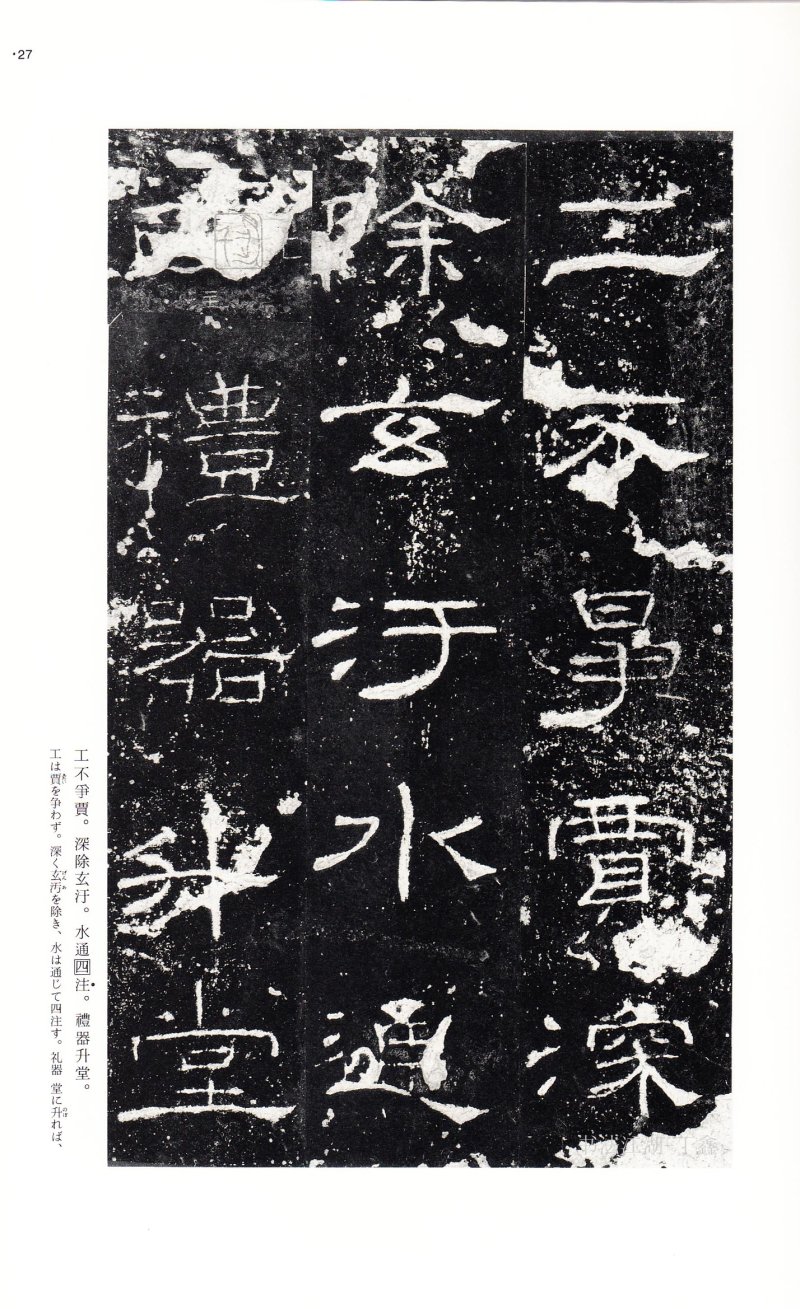 ·27
工不爭賈深
除玄汙水通
禮器升堂
工不爭賈。深除玄汙。水通四注。禮器升堂。
工は賈を争わず。深く玄汚を除き、水は通じて四注す。礼器 堂に升れば、